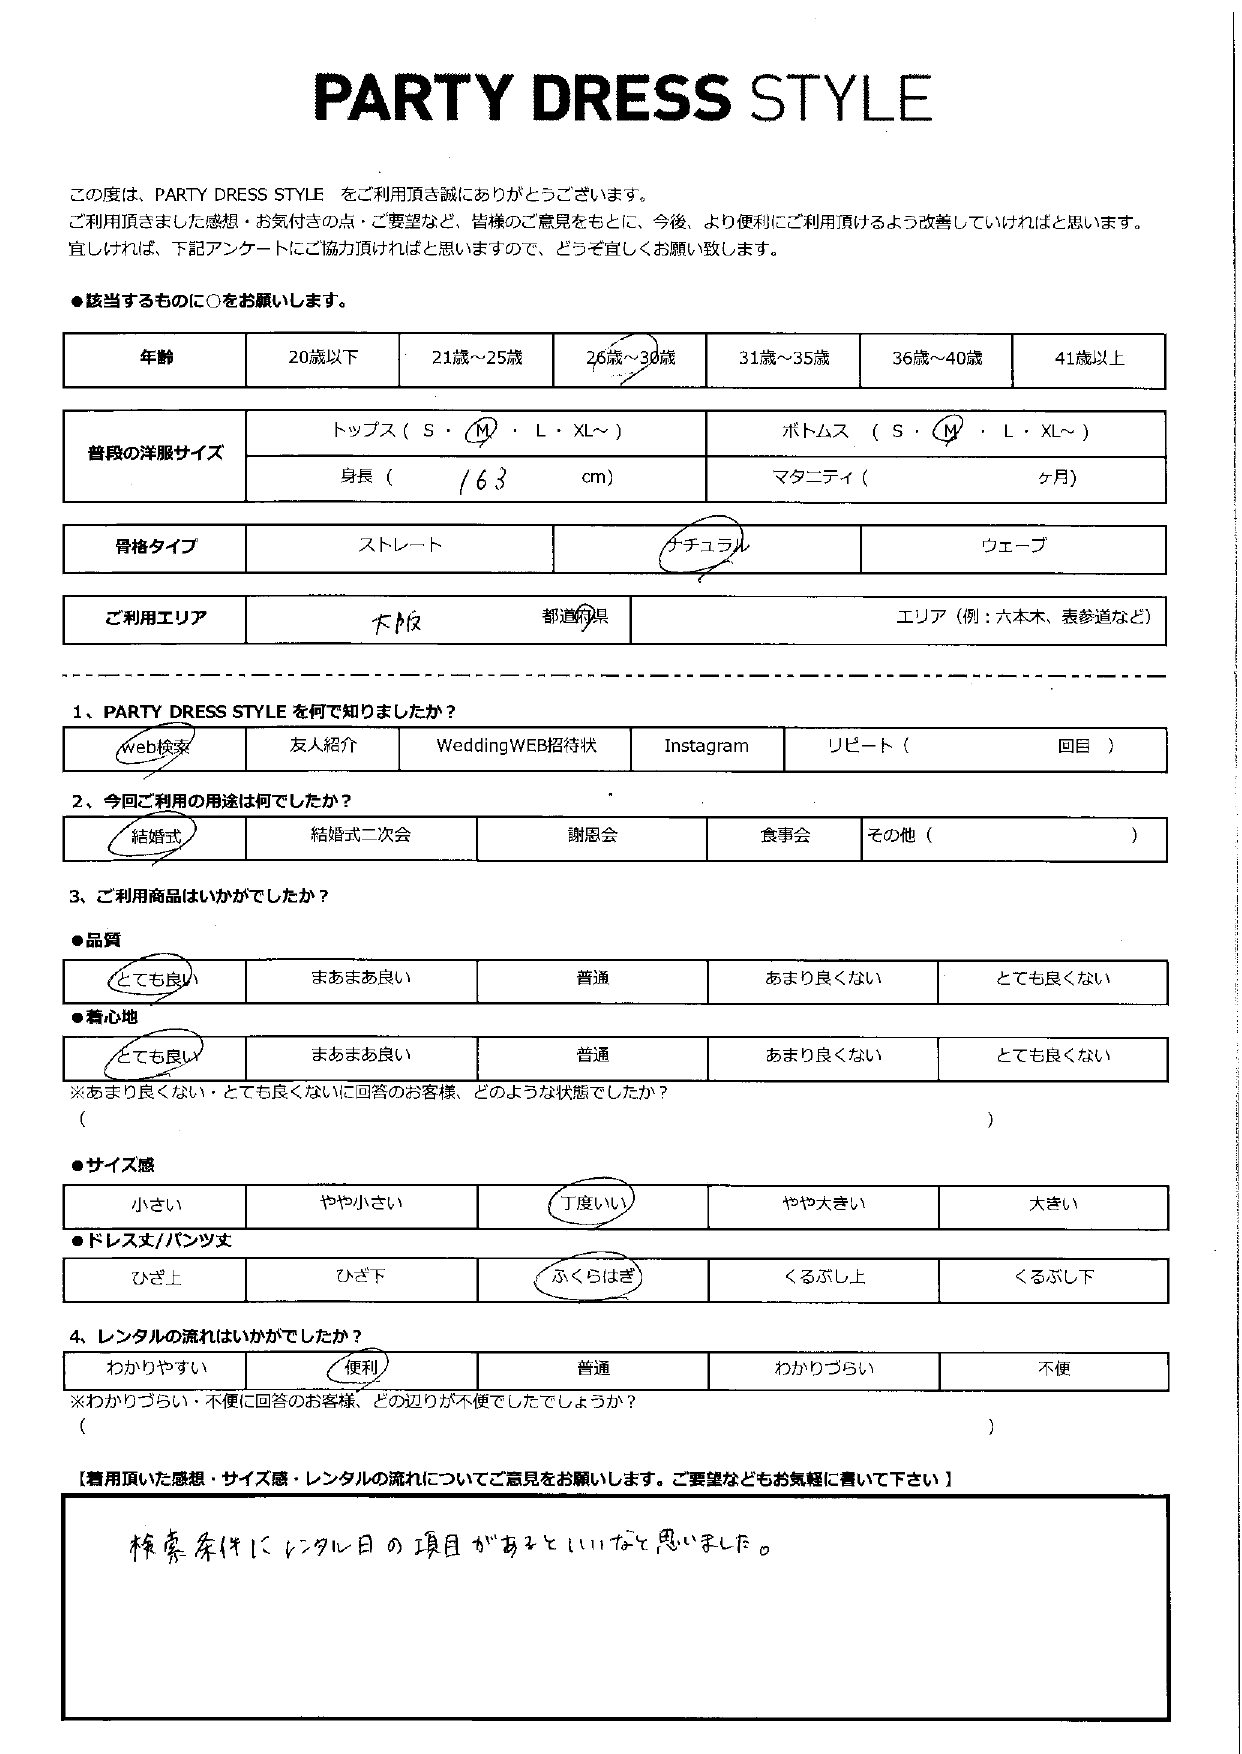 PARTY DRESS STYLE
この度は、PARTY DRESS STYLE をご利用頂き誠にありがとうございます。
ご利用頂きました感想・お気付きの点・ご要望など、皆様のご意見をもとに、今後、より便利にご利用頂けるよう改善していければと思います。
宜しければ、下記アンケートにご協力頂ければと思いますので、どうぞ宜しくお願い致します。
●該当するものに○をお願いします。
年齢 20歳以下 21歳～25歳 26歳～30歳 31歳～35歳 36歳～40歳 41歳以上
普段の洋服サイズ トップス ( S ・ M ・ L ・ XL～ ) ボトムス ( S ・ M ・ L ・ XL～ )
身長 ( 163 cm) マタニティ ( ヶ月)
骨格タイプ ストレート ナチュラル ウェーブ
ご利用エリア 大阪 都道府県 エリア（例：六本木、表参道など）
1、PARTY DRESS STYLE を何で知りましたか？
web検索 友人紹介 WeddingWEB招待状 Instagram リピート ( 回目 )
2、今回ご利用の用途は何でしたか？
結婚式 結婚式二次会 謝恩会 食事会 その他 ( )
3、ご利用商品はいかがでしたか？
●品質
とても良い まあまあ良い 普通 あまり良くない とても良くない
●着心地
とても良い まあまあ良い 普通 あまり良くない とても良くない
※あまり良くない・とても良くないに回答のお客様、どのような状態でしたか？
( )
●サイズ感
小さい やや小さい 丁度いい やや大きい 大きい
●ドレス丈/パンツ丈
ひざ上 ひざ下 ふくらはぎ くるぶし上 くるぶし下
4、レンタルの流れはいかがでしたか？
わかりやすい 便利 普通 わかりづらい 不便
※わかりづらい・不便に回答のお客様、どの辺りが不便でしたでしょうか？
( )
【着用頂いた感想・サイズ感・レンタルの流れについてご意見をお願いします。ご要望などもお気軽に書いて下さい 】
検索条件にレンタル日の項目があるといいなと思いました。